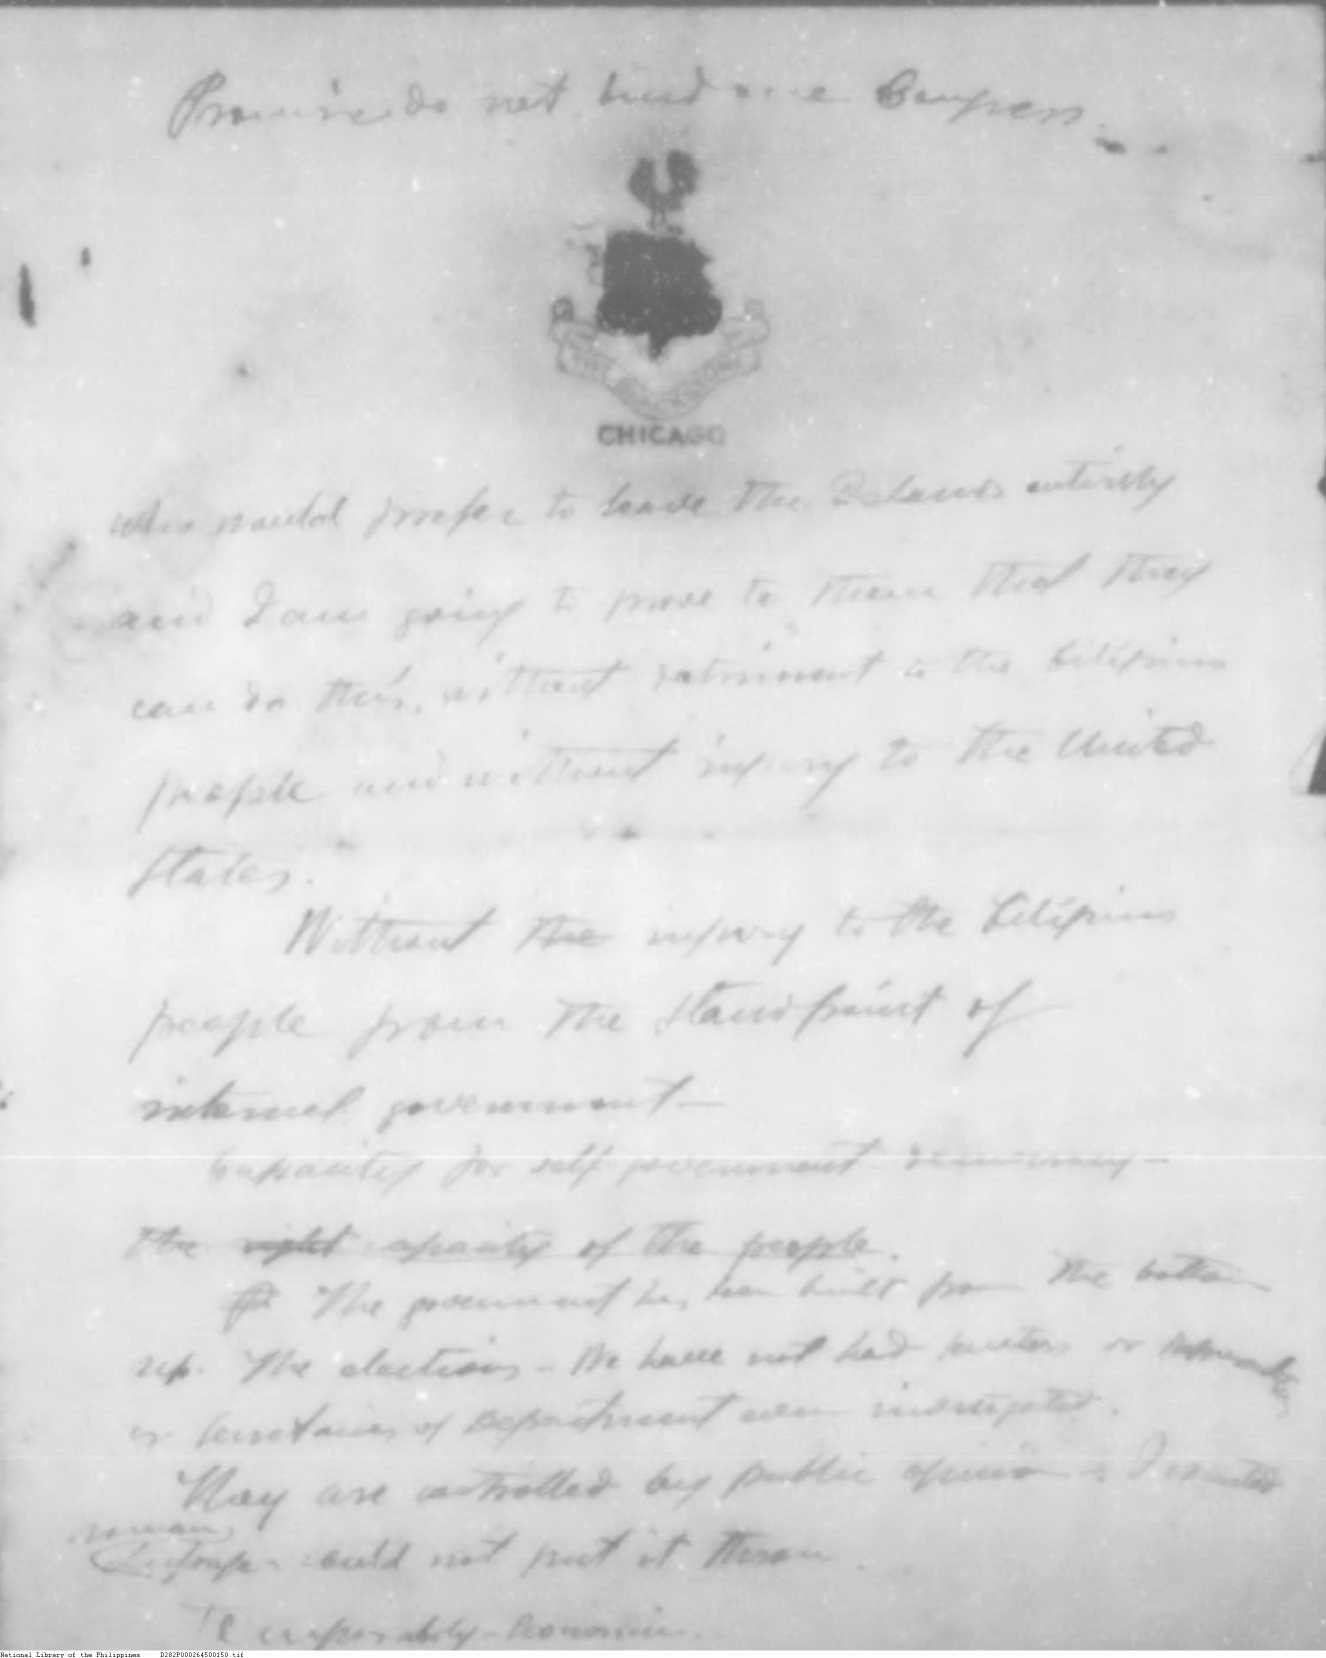 Promise do not bind one Congress.
THE BLACKSTONE
CHICAGO
who would prefer to leave the Islands entirely
and I am going to prove to them that they
can do this, without detriment to the Filipino
people and without injury to the United
States.
Without the injury to the Filipino
people from the standpoint of
internal government—
Capacity for self government democracy—
the right capacity of the people.
The government has been built from the bottom
up. The elections - We have not had senators or
or Secretaries of Department even investigated.
They are controlled by public opinion - I
woman
could not put it thru.
economic.
National Library of the Philippines D282P000264500150.tif